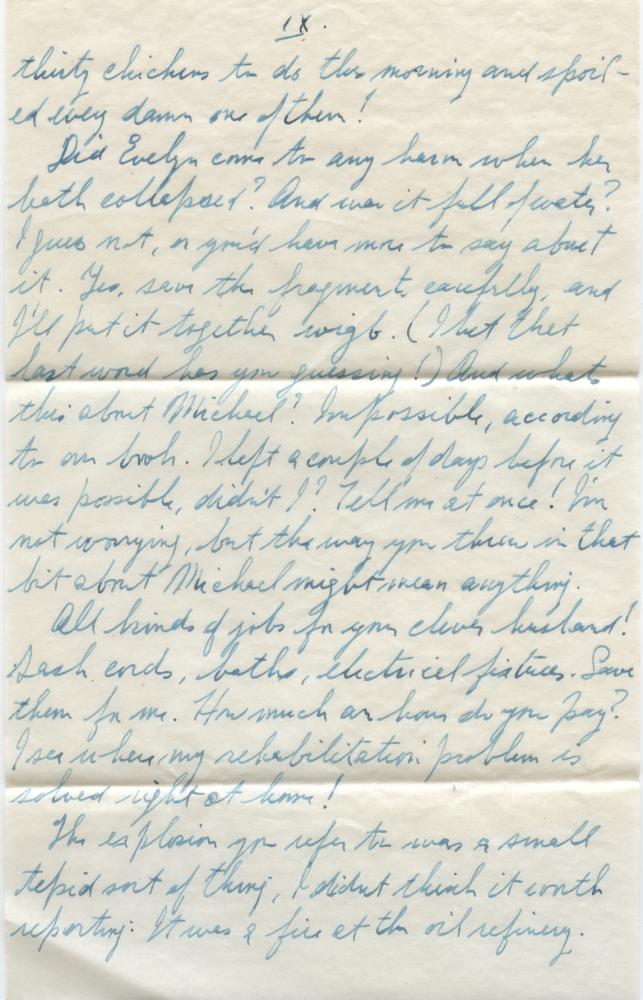 IX.
thirty chickens to do this morning and spoil-
ed every damn one of them!
Did Evelyn come to any harm when her
bath collapsed? And was it full of water?
I guess not, or you'd have more to say about
it. Yes, save the fragments carefully, and
I'll put it together wigb. (I bet that
last word has you guessing!) And what's
this about Michael? Impossible, according
to our book. I left a couple of days before it
was possible, didn't I? Tell me at once! I'm
not worrying, but the way you threw in that
bit about Michael might mean anything.
All kinds of jobs for your clever husband!
Sash cords, baths, electrical fixtures. Save
them for me. How much an hour do you pay?
I see where my rehabilitation problem is
solved right at home!
The explosion you refer to was a small
tepid sort of thing, I didn't think it worth
reporting. It was a fire at the oil refinery.